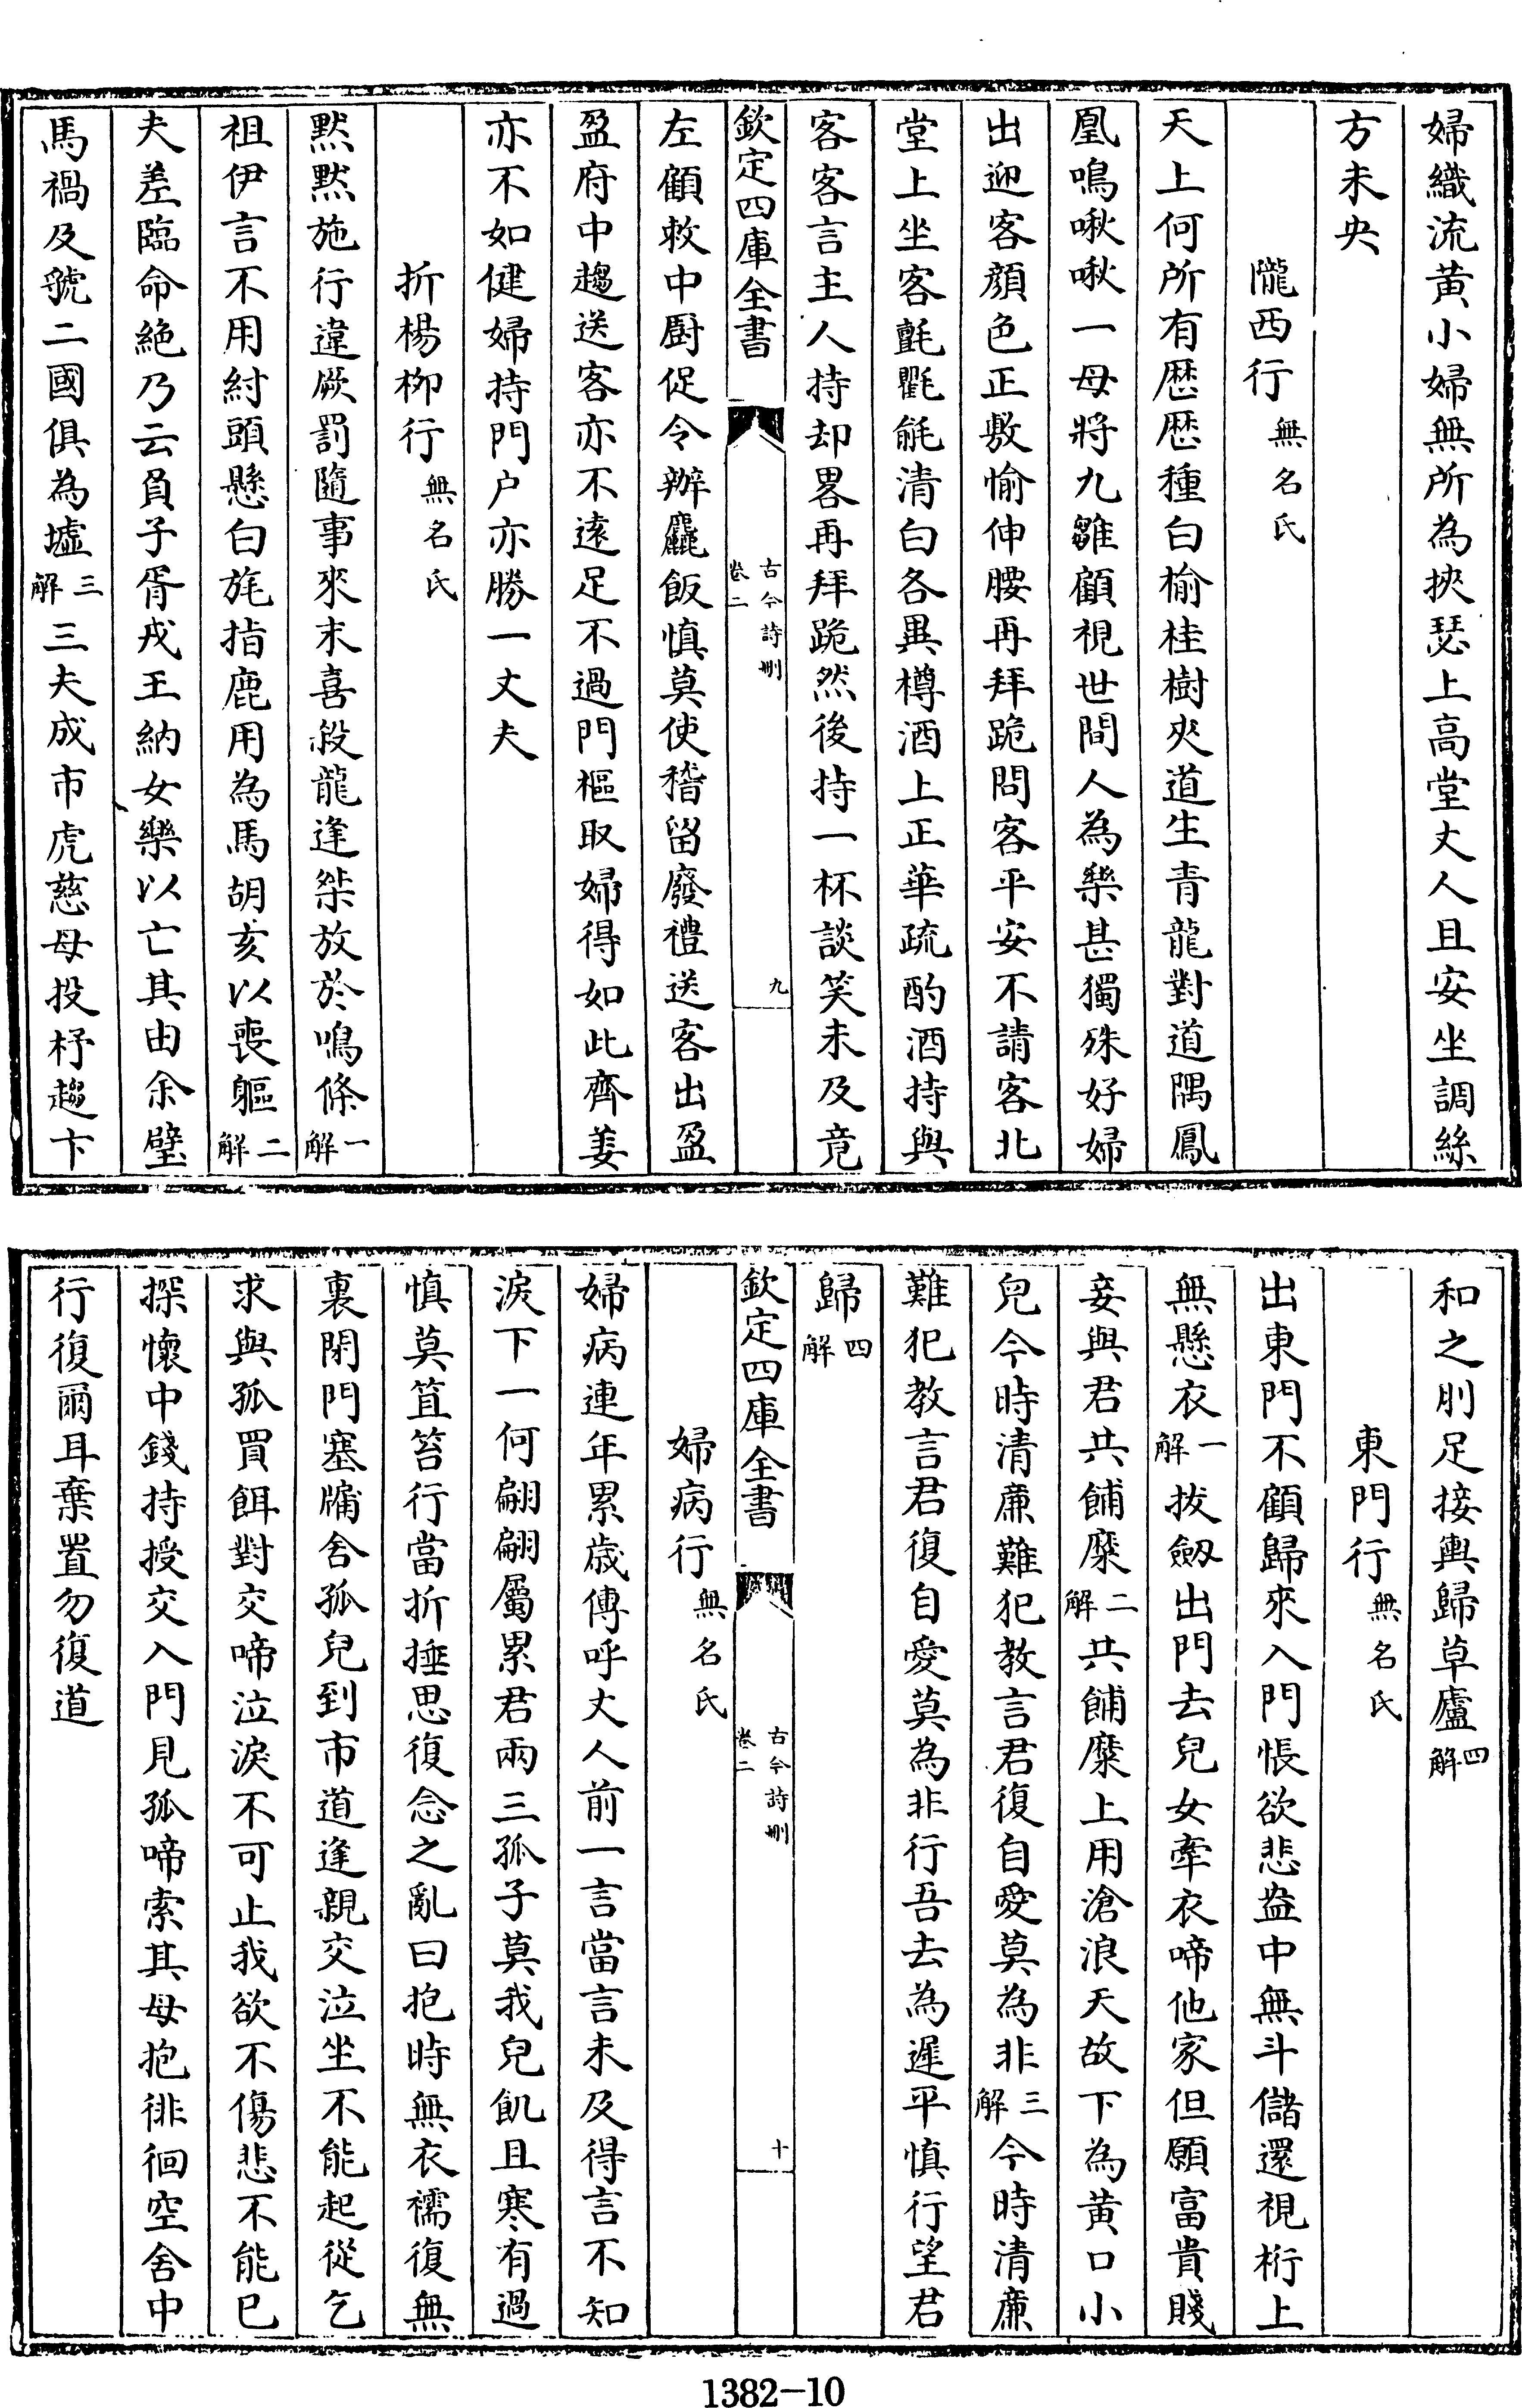 婦織流黄小婦無所為挾瑟上高堂丈人且安坐調絲
方未央
隴西行無名氏
天上何所有歴歴種白榆桂樹夾道生青龍對道隅鳳
凰鳴啾啾一母將九雛顧視世間人為樂甚獨殊好婦
出迎客顔色正敷愉伸腰再拜跪問客平安不請客北
堂上坐客氈氍毹清白各異樽酒上正華疏酌酒持與
客客言主人持却畧再拜跪然後持一杯談笑未及竟
欽定四庫全書
古今詩刪
卷二
九
左顧敕中厨促令辦麤飯慎莫使稽留廢禮送客出盈
盈府中趨送客亦不逺足不過門樞取婦得如此齊姜
亦不如健婦持門户亦勝一丈夫
折楊栁行無名氏
黙黙施行違厥罰隨事來末喜殺龍逢桀放於鳴條一解
祖伊言不用紂頭懸白旄指鹿用為馬胡亥以喪軀二解
夫差臨命絶乃云負子胥戎王納女樂以亡其由余璧
馬禍及虢二國俱為墟三解三夫成市虎慈母投杼趨卞
和之刖足接輿歸草廬四解
東門行無名氏
出東門不顧歸來入門悵欲悲盎中無斗儲還視桁上
無懸衣一解拔劔出門去兒女牽衣啼他家但願富貴賤
妾與君共餔糜二解共餔糜上用滄浪天故下為黄口小
兒今時清廉難犯教言君復自愛莫為非三解今時清廉
難犯教言君復自愛莫為非行吾去為遲平慎行望君
歸四解
欽定四庫全書
古今詩刪
卷二
十
婦病行無名氏
婦病連年累歲傳呼丈人前一言當言未及得言不知
淚下一何翩翩屬累君兩三孤子莫我兒飢且寒有過
慎莫笪笞行當折捶思復念之亂曰抱時無衣襦復無
裏閉門塞牖舍孤兒到市道逢親交泣坐不能起從乞
求與孤買餌對交啼泣淚不可止我欲不傷悲不能已
探懷中錢持授交入門見孤啼索其母抱徘徊空舍中
行復爾耳棄置勿復道
1382-10